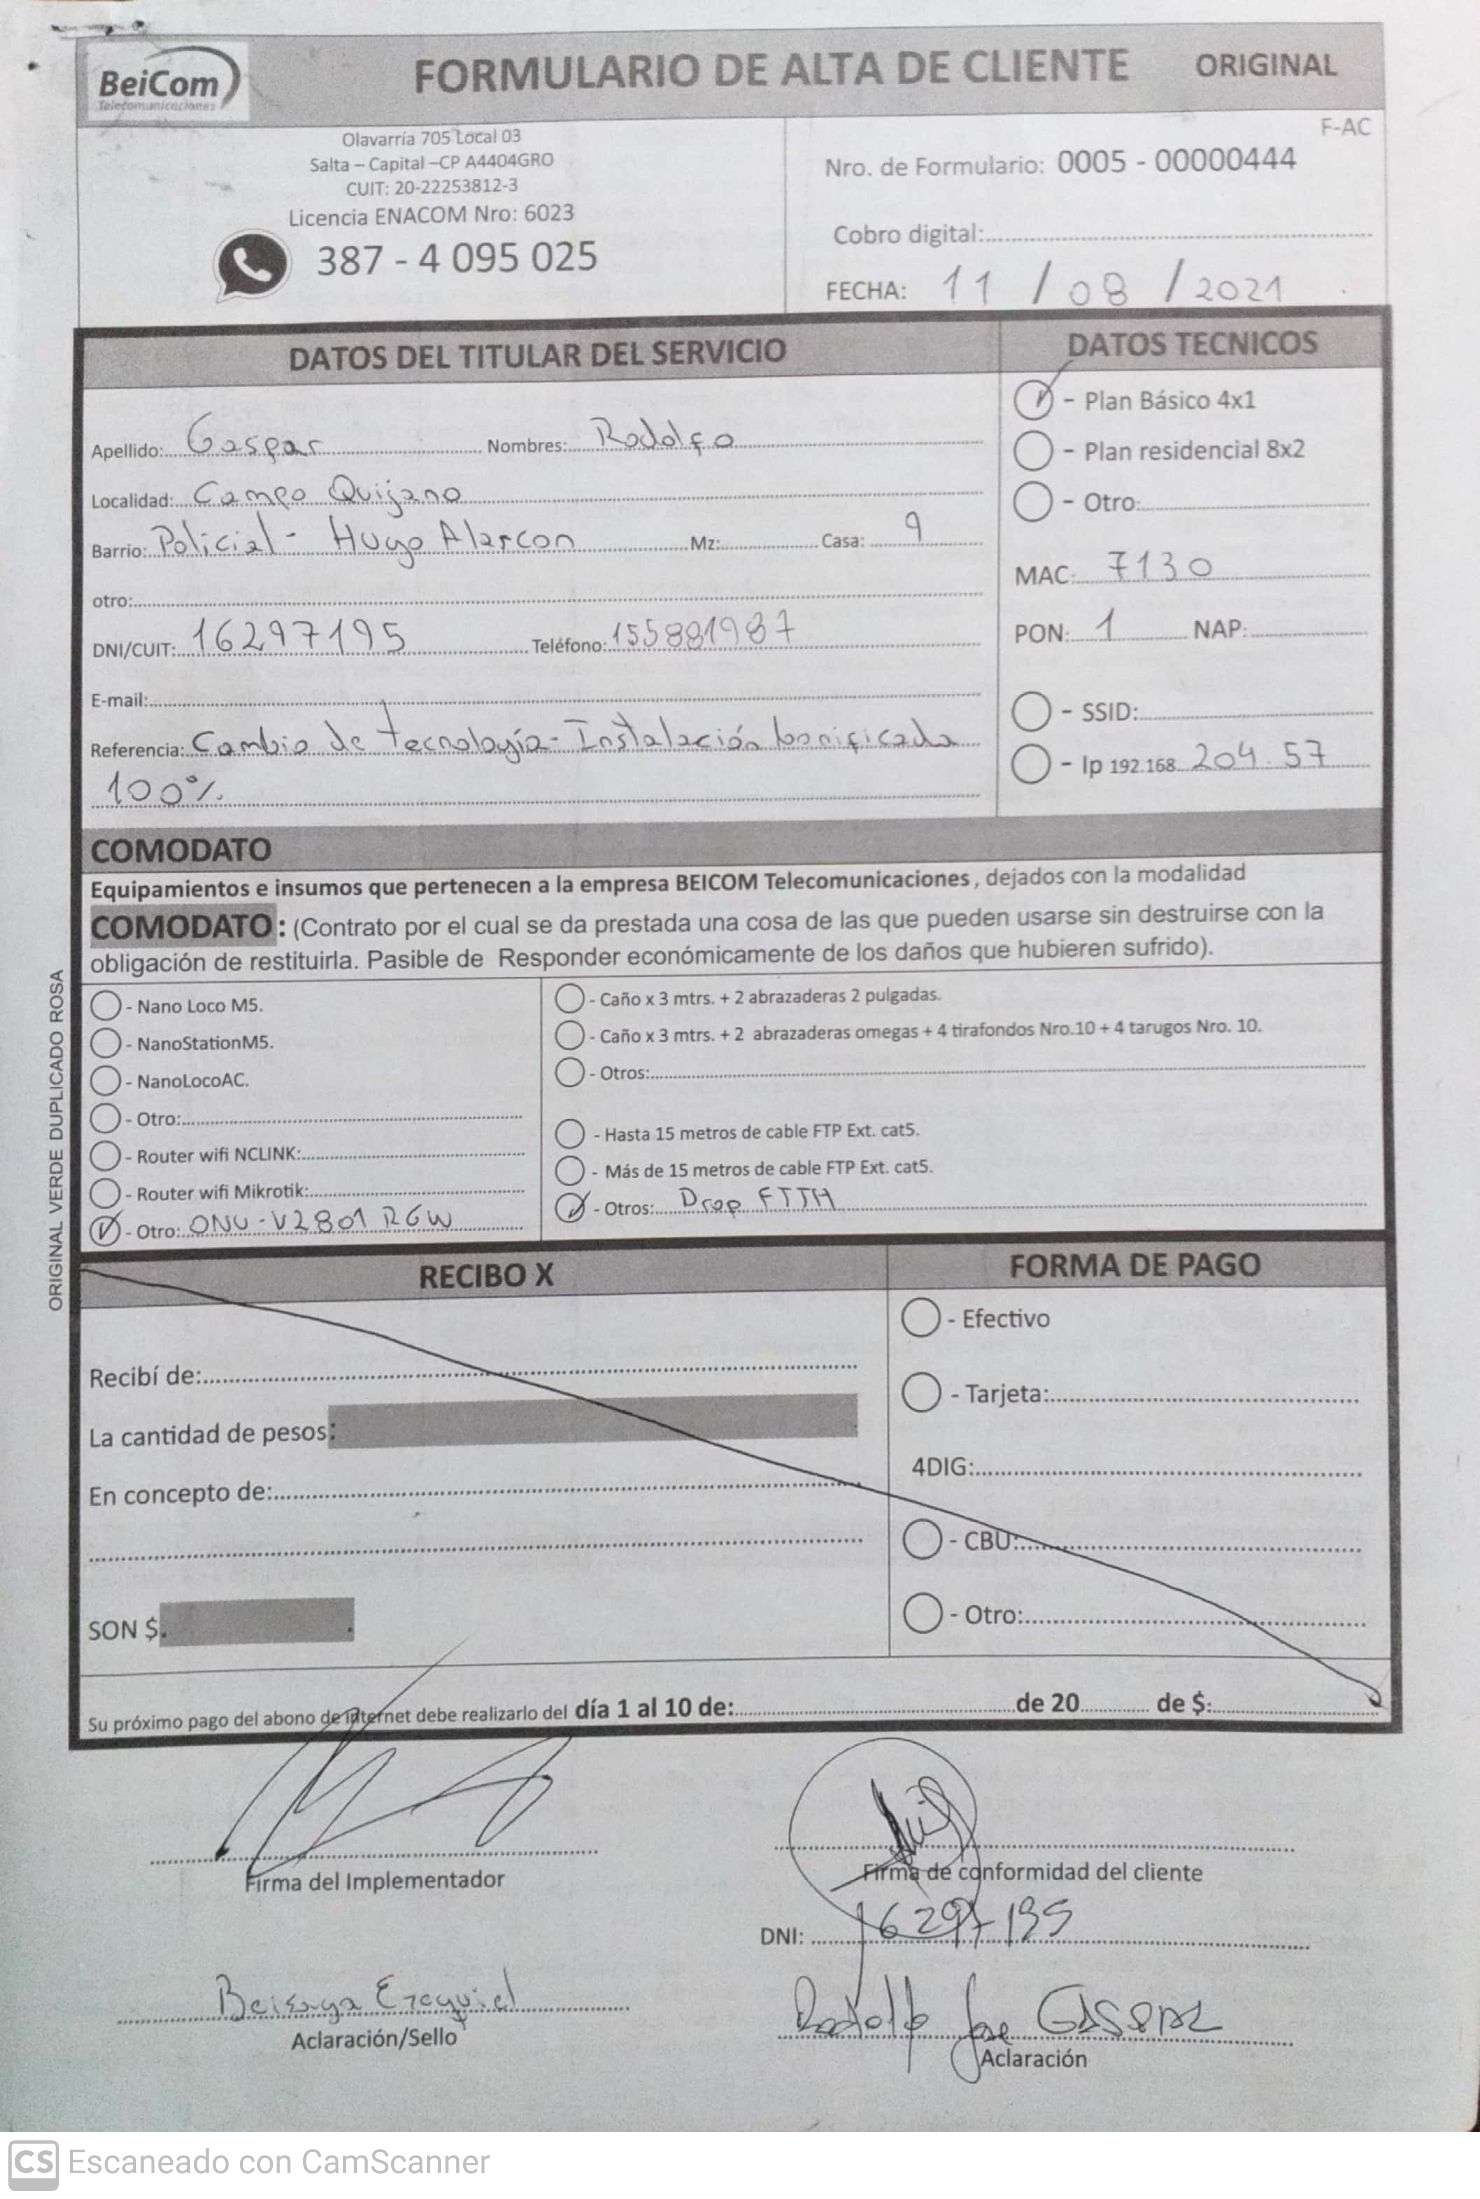 BeiCom
Telecomunicaciones
FORMULARIO DE ALTA DE CLIENTE ORIGINAL
Olavarría 705 Local 03
Salta – Capital –CP A4404GRO
CUIT: 20-22253812-3
Licencia ENACOM Nro: 6023
387 - 4 095 025
F-AC
Nro. de Formulario: 0005 - 00000444
Cobro digital:
FECHA: 11 / 08 / 2021
DATOS DEL TITULAR DEL SERVICIO
Apellido: Gaspar Nombres: Rodolfo
Localidad: Campo Quijano
Barrio: Policial - Hugo Alarcon Mz: Casa: 9
otro:
DNI/CUIT: 16297195 Teléfono: 155881987
E-mail:
Referencia: Cambio de tecnología - Instalación bonificada
100%
DATOS TECNICOS
- Plan Básico 4x1
- Plan residencial 8x2
- Otro:
MAC: 7130
PON: 1 NAP:
- SSID:
- Ip 192.168. 204.57
COMODATO
Equipamientos e insumos que pertenecen a la empresa BEICOM Telecomunicaciones, dejados con la modalidad
COMODATO : (Contrato por el cual se da prestada una cosa de las que pueden usarse sin destruirse con la
obligación de restituirla. Pasible de Responder económicamente de los daños que hubieren sufrido).
- Nano Loco M5.
- NanoStationM5.
- NanoLocoAC.
- Otro:
- Router wifi NCLINK:
- Router wifi Mikrotik:
- Otro: ONU-V2801 RGW
- Caño x 3 mtrs. + 2 abrazaderas 2 pulgadas.
- Caño x 3 mtrs. + 2 abrazaderas omegas + 4 tirafondos Nro.10 + 4 tarugos Nro. 10.
- Otros:
- Hasta 15 metros de cable FTP Ext. cat5.
- Más de 15 metros de cable FTP Ext. cat5.
- Otros: Drop FTTH
ORIGINAL VERDE DUPLICADO ROSA
RECIBO X
Recibí de:
La cantidad de pesos:
En concepto de:
SON $.
FORMA DE PAGO
- Efectivo
- Tarjeta:
4DIG:
- CBU:
- Otro:
Su próximo pago del abono de internet debe realizarlo del día 1 al 10 de: de 20 de $:
Firma del Implementador
Firma de conformidad del cliente
DNI: 16297195
Beizaga Ezequiel
Aclaración/Sello
Rodolfo Jose GASPAR
Aclaración
CS Escaneado con CamScanner